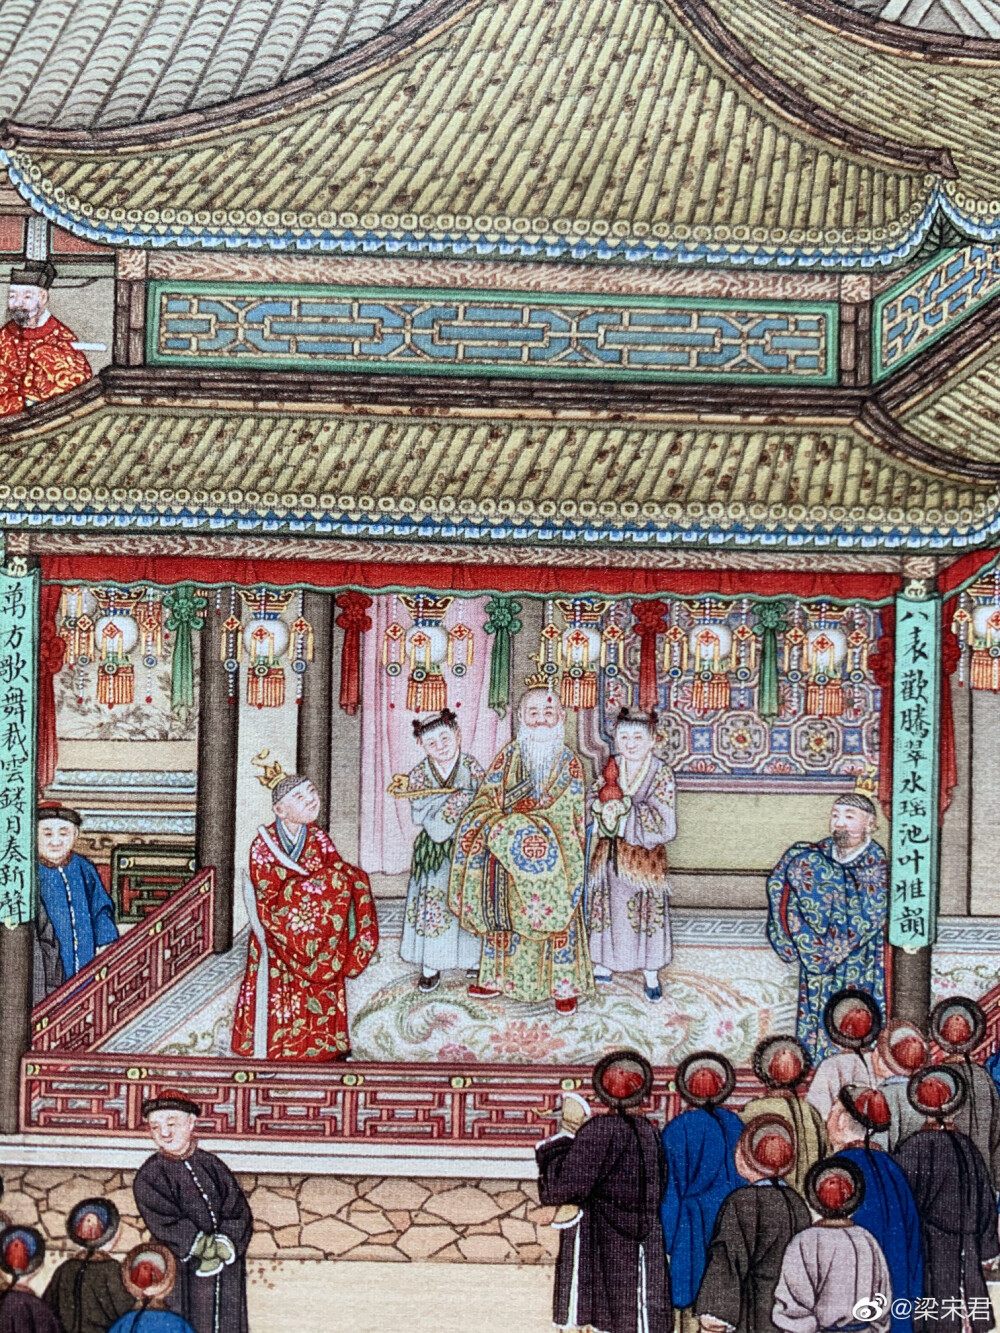 八袠歡騰翠水瑶池叶雅韻
萬方歌舞裁雲鏤月奏新聲
@梁宋君